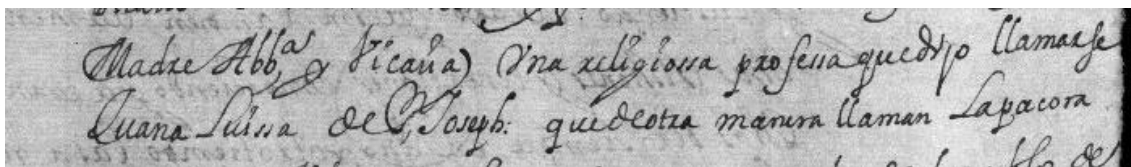 Madre Abb.as y Vicaria) Una religiossa professa que dijo llamarse
Juana Luissa de S. Joseph. que de otra manera llaman La pacora